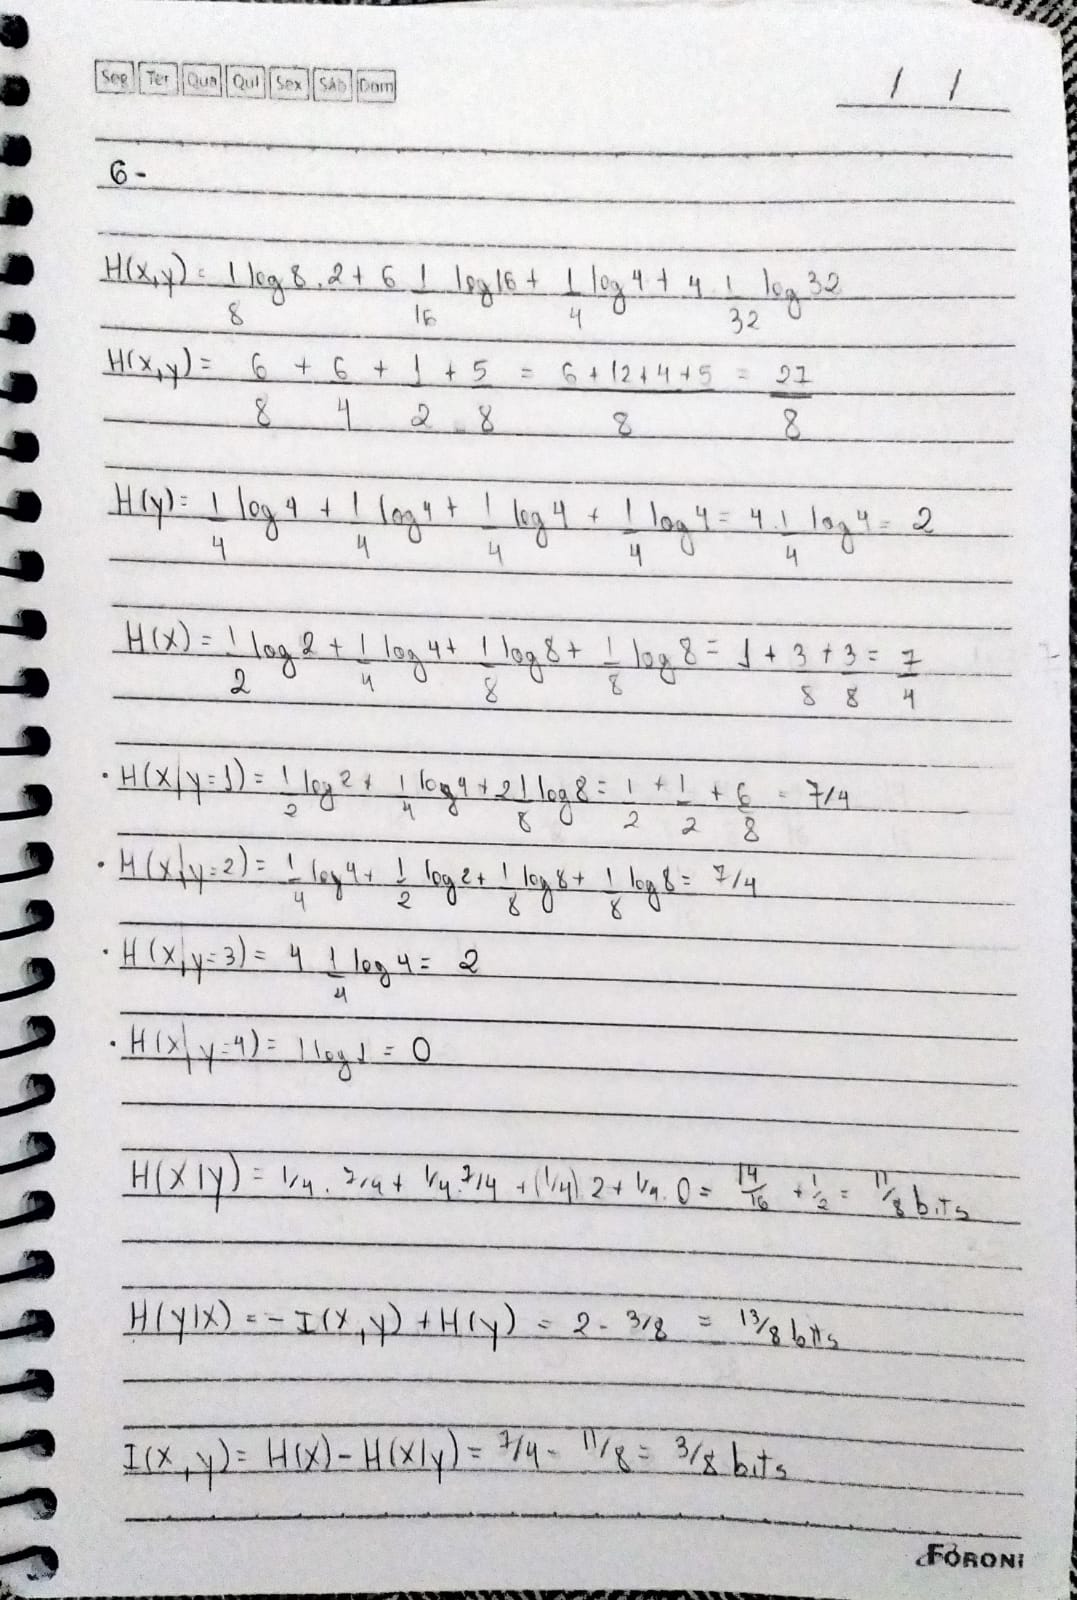 Seg Ter Qua Qui Sex Sáb Dom / /
6-
H(x,y) = 1/8 log 8 . 2 + 6 1/16 log 16 + 1/4 log 4 + 4 1/32 log 32
H(x,y) = 6/8 + 6/4 + 1/2 + 5/8 = 6 + 12 + 4 + 5 / 8 = 27/8
H(y) = 1/4 log 4 + 1/4 log 4 + 1/4 log 4 + 1/4 log 4 = 4 . 1/4 log 4 = 2
H(x) = 1/2 log 2 + 1/4 log 4 + 1/8 log 8 + 1/8 log 8 = 1 + 3/8 + 3/8 = 7/4
• H(x|y=1) = 1/2 log 2 + 1/4 log 4 + 2 1/8 log 8 = 1/2 + 1/2 + 6/8 = 7/4
• H(x|y=2) = 1/4 log 4 + 1/2 log 2 + 1/8 log 8 + 1/8 log 8 = 7/4
• H(x|y=3) = 4 1/4 log 4 = 2
• H(x|y=4) = 1 log 1 = 0
H(X|y) = 1/4 . 7/4 + 1/4 . 7/4 + (1/4) 2 + 1/4 . 0 = 14/16 + 1/2 = 11/8 bits
H(y|X) = - I(X,y) + H(y) = 2 - 3/8 = 13/8 bits
I(X,y) = H(X) - H(X|y) = 7/4 - 11/8 = 3/8 bits
FORONI